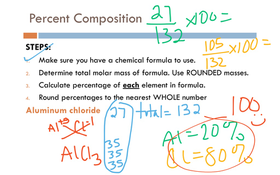 Percent Composition
27/132 x100=
105/132 x100=
STEPS:
1. Make sure you have a chemical formula to use.
2. Determine total molar mass of formula. Use ROUNDED masses.
3. Calculate percentage of each element in formula.
4. Round percentages to the nearest WHOLE number
Aluminum chloride
27
total = 132
100
Al+3 Cl-1
AlCl3
35
35
35
Al = 20%
Cl = 80%